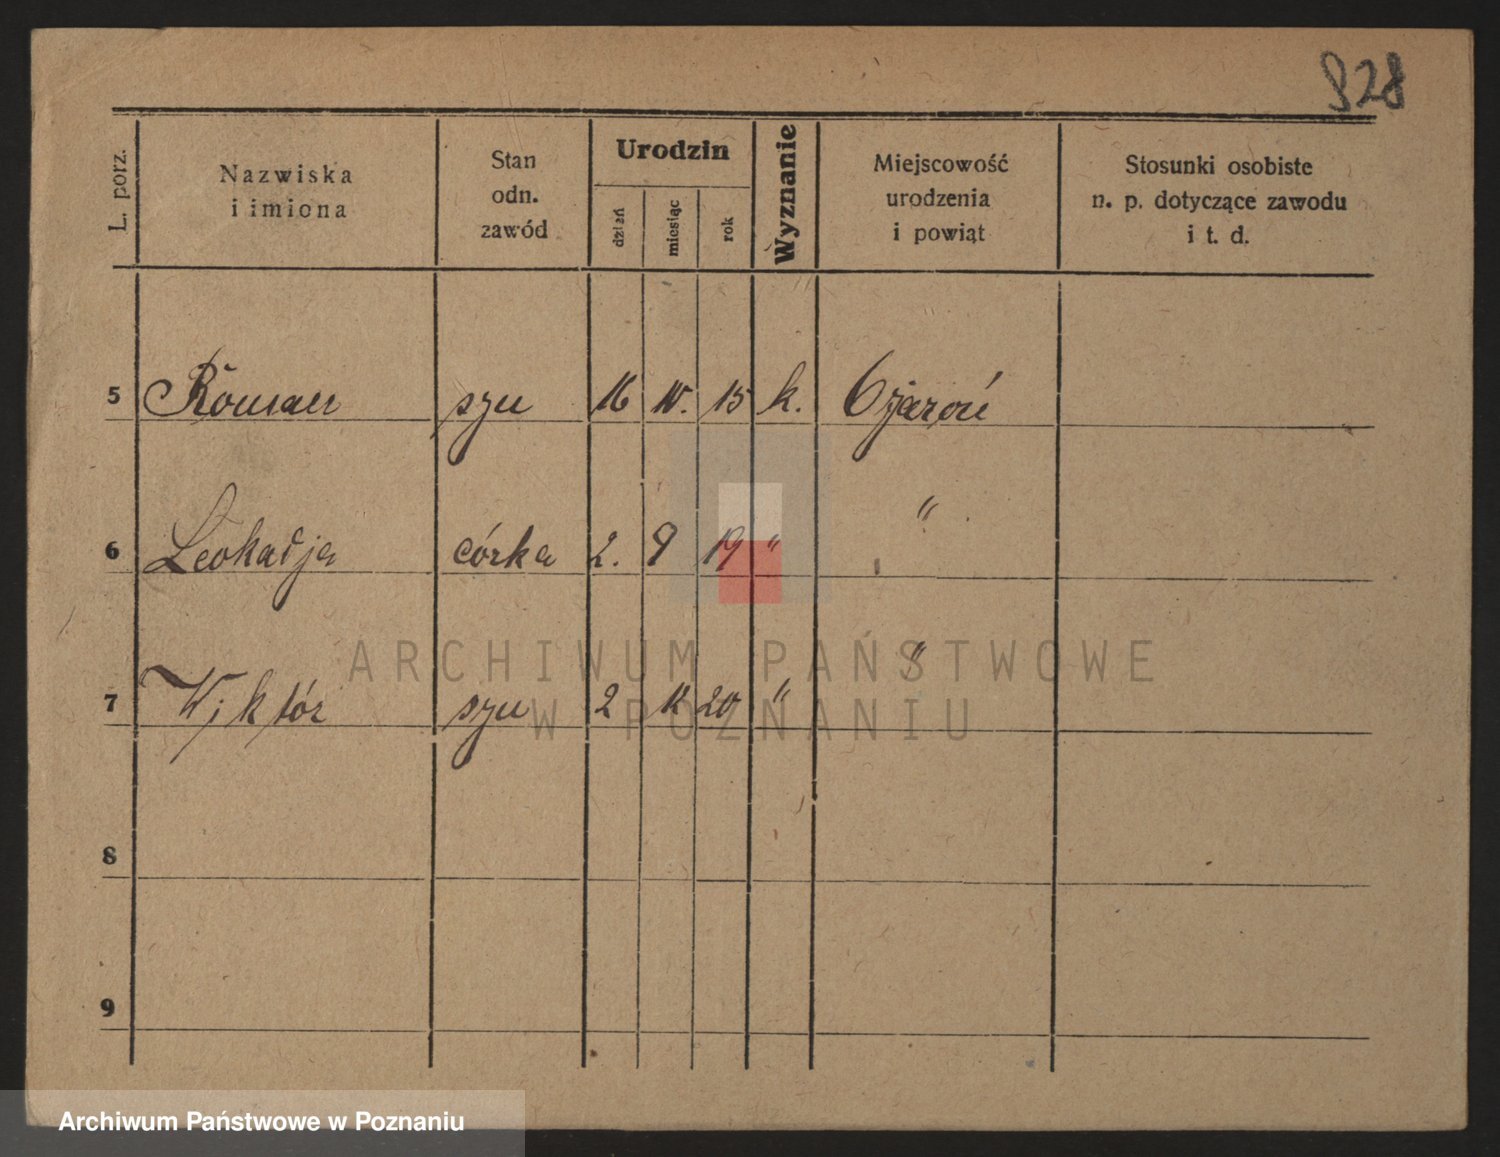 928
L. porz.
Nazwiska i imiona
Stan odn. zawód
Urodzin
dzień
miesiąc
rok
Wyznanie
Miejscowość urodzenia i powiąt
Stosunki osobiste n. p. dotyczące zawodu i t. d.
5 Roman syn 16 10. 15 k. Ożarów
6 Leokadja córka 2. 9 19 " "
7 Wiktór syn 2 12 20 " "
8
9
ARCHIWUM PAŃSTWOWE
W POZNANIU
Archiwum Państwowe w Poznaniu